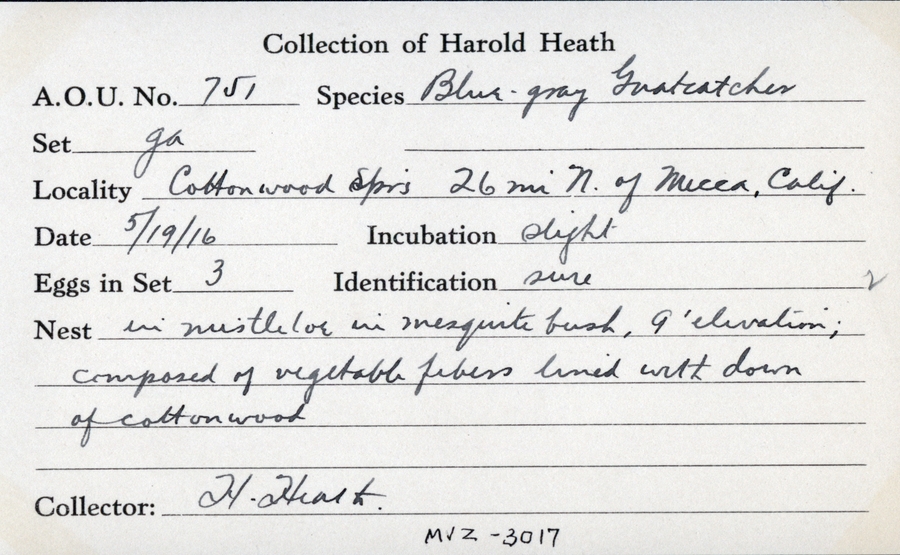 Collection of Harold Heath
A.O.U. No. 751 Species Blue-gray Gnatcatcher
Set ga
Locality Cottonwood Sprs 26 mi N. of Mecca, Calif.
Date 5/19/16 Incubation slight
Eggs in Set 3 Identification sure
Nest in mistletoe in mesquite bush, 9' elevation;
composed of vegetable febers lined with down
of cottonwood
Collector: H. Heath.
MVZ-3017